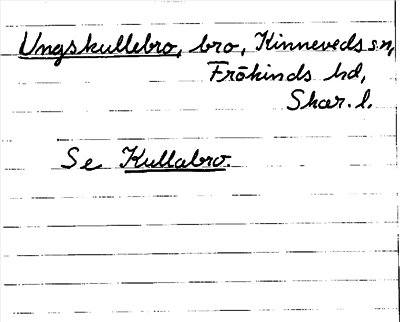 Ungskullebro, bro, Kinneveds sn,
Frökinds hd,
Skar. l.
Se Kullabro.